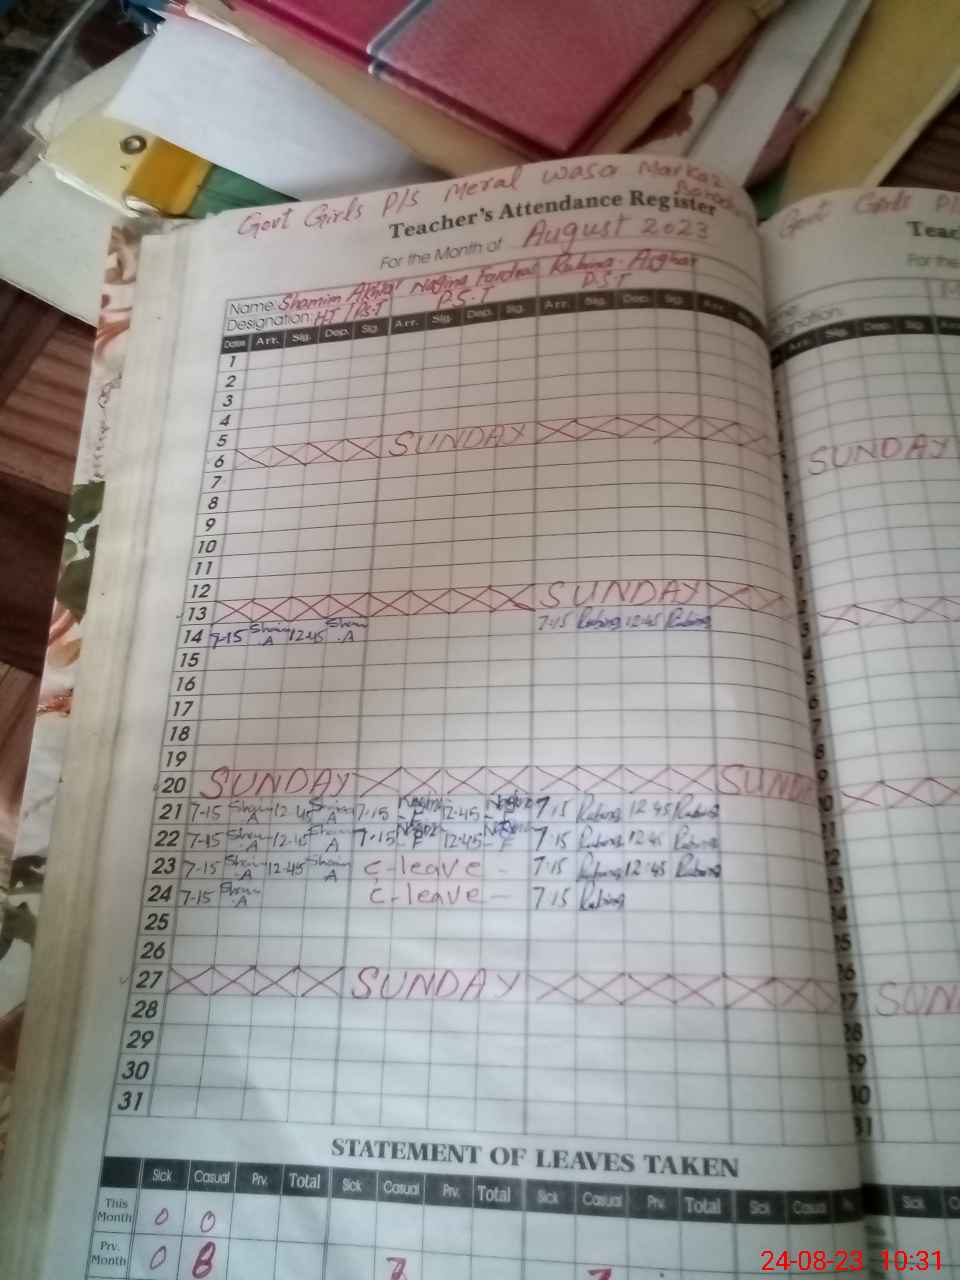 Govt Girls P/s Meral wasa Markaz
Teacher's Attendance Register
For the Month of August 2023
Name: Shamim Akhtar Nagina Farohat Rubina Asghar
Designation: HT/PS.T P.S.T P.S.T
Dates Arr. Sig. Dep. Sig. Arr. Sig. Dep. Sig. Arr. Sig. Dep. Sig. Arr.
1
2
3
4
5
6 SUNDAY
7
8
9
10
11
12
13 SUNDAY
14 7-15 Sham A 12-45 Sham A 7-15 Rubina 12-45 Rubina
15
16
17
18
19
20 SUNDAY SUNDAY
21 7-15 Sham A 12-45 Sham A 7-15 Nagina F 12-45 Nagina F 7-15 Rubina 12-45 Rubina
22 7-15 Sham A 12-45 Sham A 7-15 Nagina F 12-45 Nagina F 7-15 Rubina 12-45 Rubina
23 7-15 Sham A 12-45 Sham A C-leave - 7-15 Rubina 12-45 Rubina
24 7-15 Sham A C-leave - 7-15 Rubina
25
26
27 SUNDAY
28
29
30
31
STATEMENT OF LEAVES TAKEN
Sick Casual Prv. Total Sick Casual Prv. Total Sick Casual Prv. Total Sick Casual
This Month 0 0
Prv. Month 0 8
Govt Girls P/
Teac
For the
Arr. Sig. Dep. Sig.
SUNDAY
SUN
Sick
24-08-23 10:31